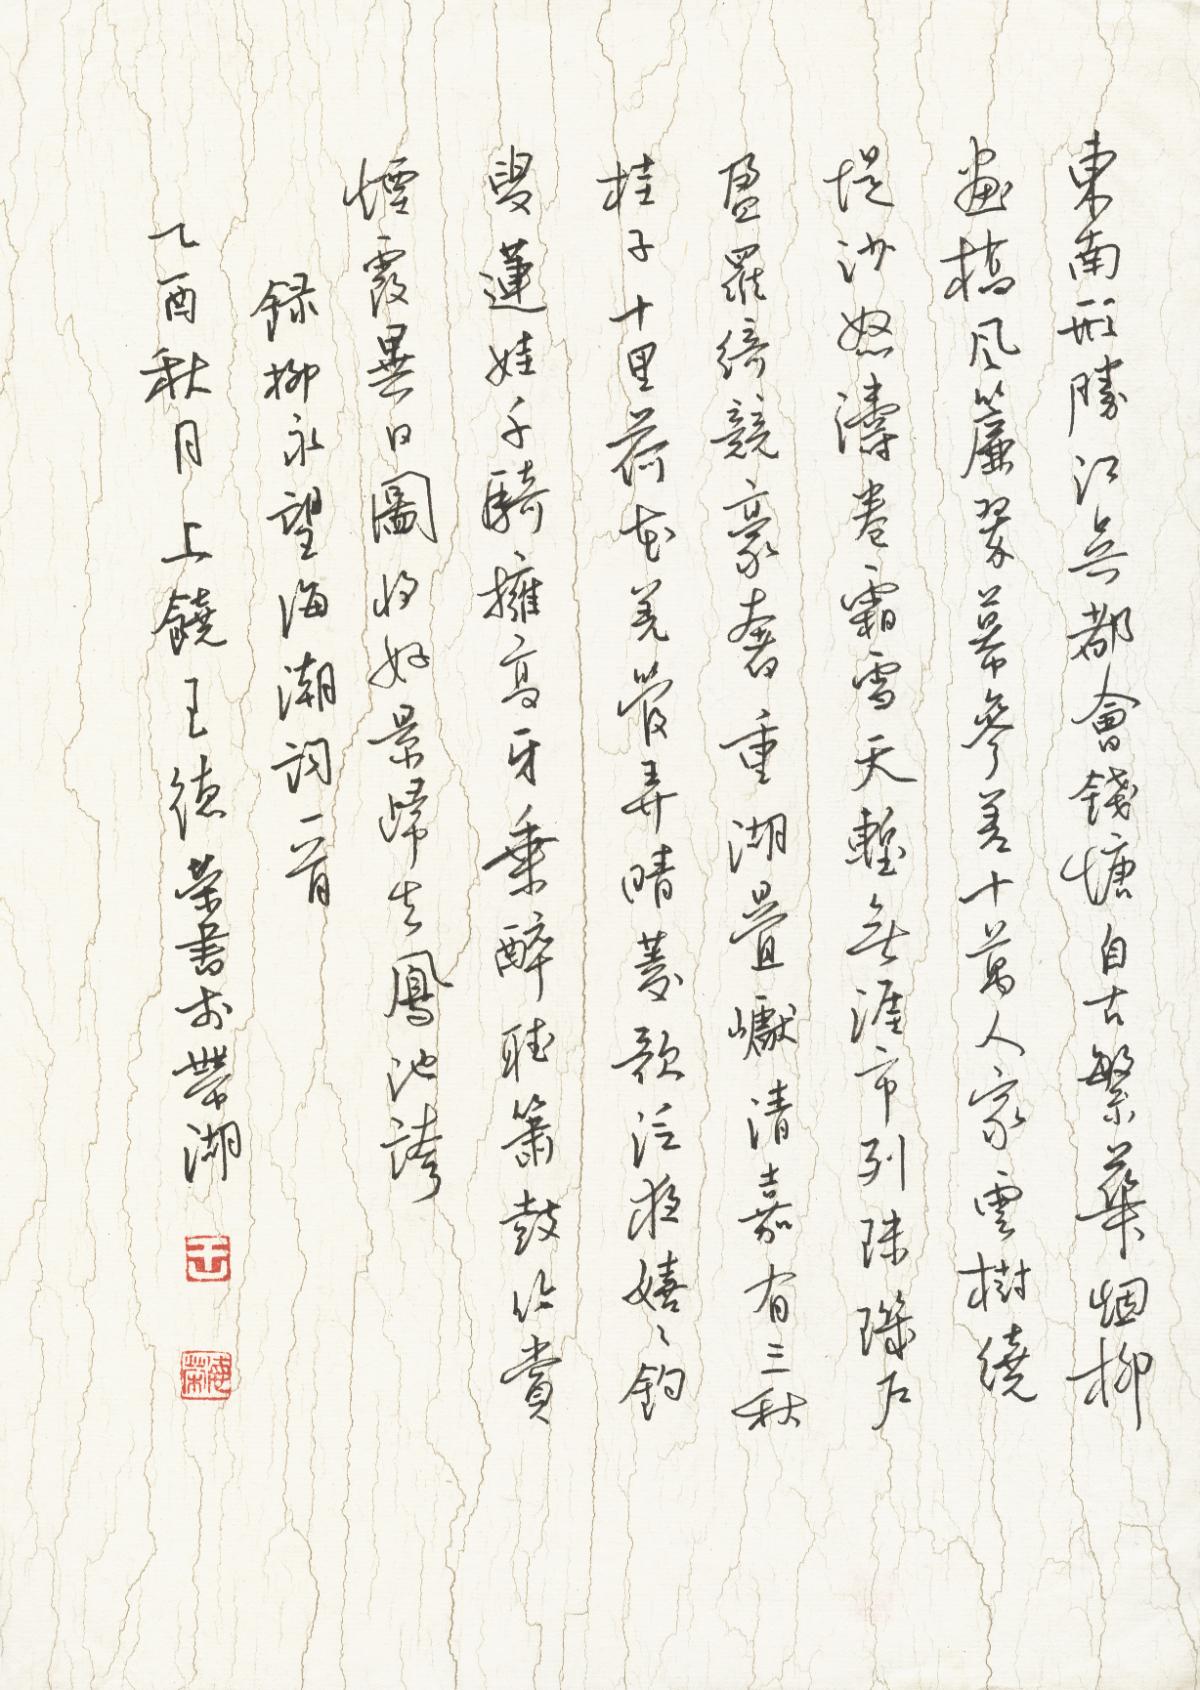 東南形勝江吳都會錢塘自古繁華烟柳
畫橋風簾翠幕參差十萬人家雲樹繞
堤沙怒濤卷霜雪天塹無涯市列珠璣戶
盈羅綺競豪奢重湖疊巘清嘉有三秋
桂子十里荷花羌管弄晴菱歌泛夜嬉嬉釣
叟蓮娃千騎擁高牙乘醉聽簫鼓吟賞
煙霞異日圖將好景歸去鳳池誇
録柳永望海潮詞一首
乙酉秋月上饒王德榮書於帶湖
王